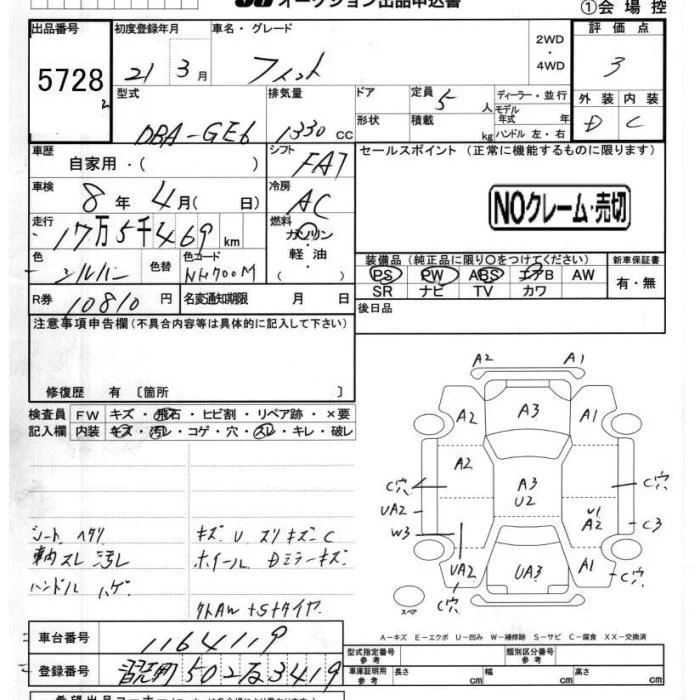 オークション出品申込書
①会場控
出品番号
5728
初度登録年月
21 3月
車名・グレード
フィット
2WD
・
4WD
評価点
3
外装 内装
D C
型式
DBA-GE6
排気量
1330 CC
ドア
形状
定員 5 人
積載 kg
ディーラー・並行
モデル年式 年
ハンドル 左・右
車歴
自家用・( )
シフト
FAT
車検
8年 4月( 日)
冷房
AC
走行
17万5千469 km
燃料
ガソリン
・
軽油
・( )
色
シルバー
色替
色コード
NH700M
R券 10810円
名変通知期限 月 日
セールスポイント (正常に機能するものに限ります)
NOクレーム・売切
装備品 (純正品に限り○をつけてください)
新車保証書
PS PW ABS エアB AW
SR ナビ TV カワ
有・無
後日品
注意事項申告欄(不具合内容等は具体的に記入して下さい)
修復歴 有 〔箇所 〕
検査員 FW キズ・飛石・ヒビ割・リペア跡・×要
記入欄 内装 キズ・汚レ・コゲ・穴・スレ・キレ・破レ
シート ヘタリ
車内 スレ 汚レ
ハンドル ハゲ
キズ U スリキズ C
ホイール Dミラーキズ
外AW +S+タイヤ
A2 A1
A2 A3 A1
A2 A3 U2 U1 A2
C穴 C穴
UA2 C3
W3
UA2 UA3 A1
C穴 C穴
スペア
A-キズ E-エクボ U-凹み W-補修跡 S-サビ C-腐食 XX-交換済
車台番号 1164119
登録番号 習志野 502 な 3419
型式指定番号 参考
類別区分番号 参考
車庫証明用 参考 長さ cm 幅 cm 高さ cm